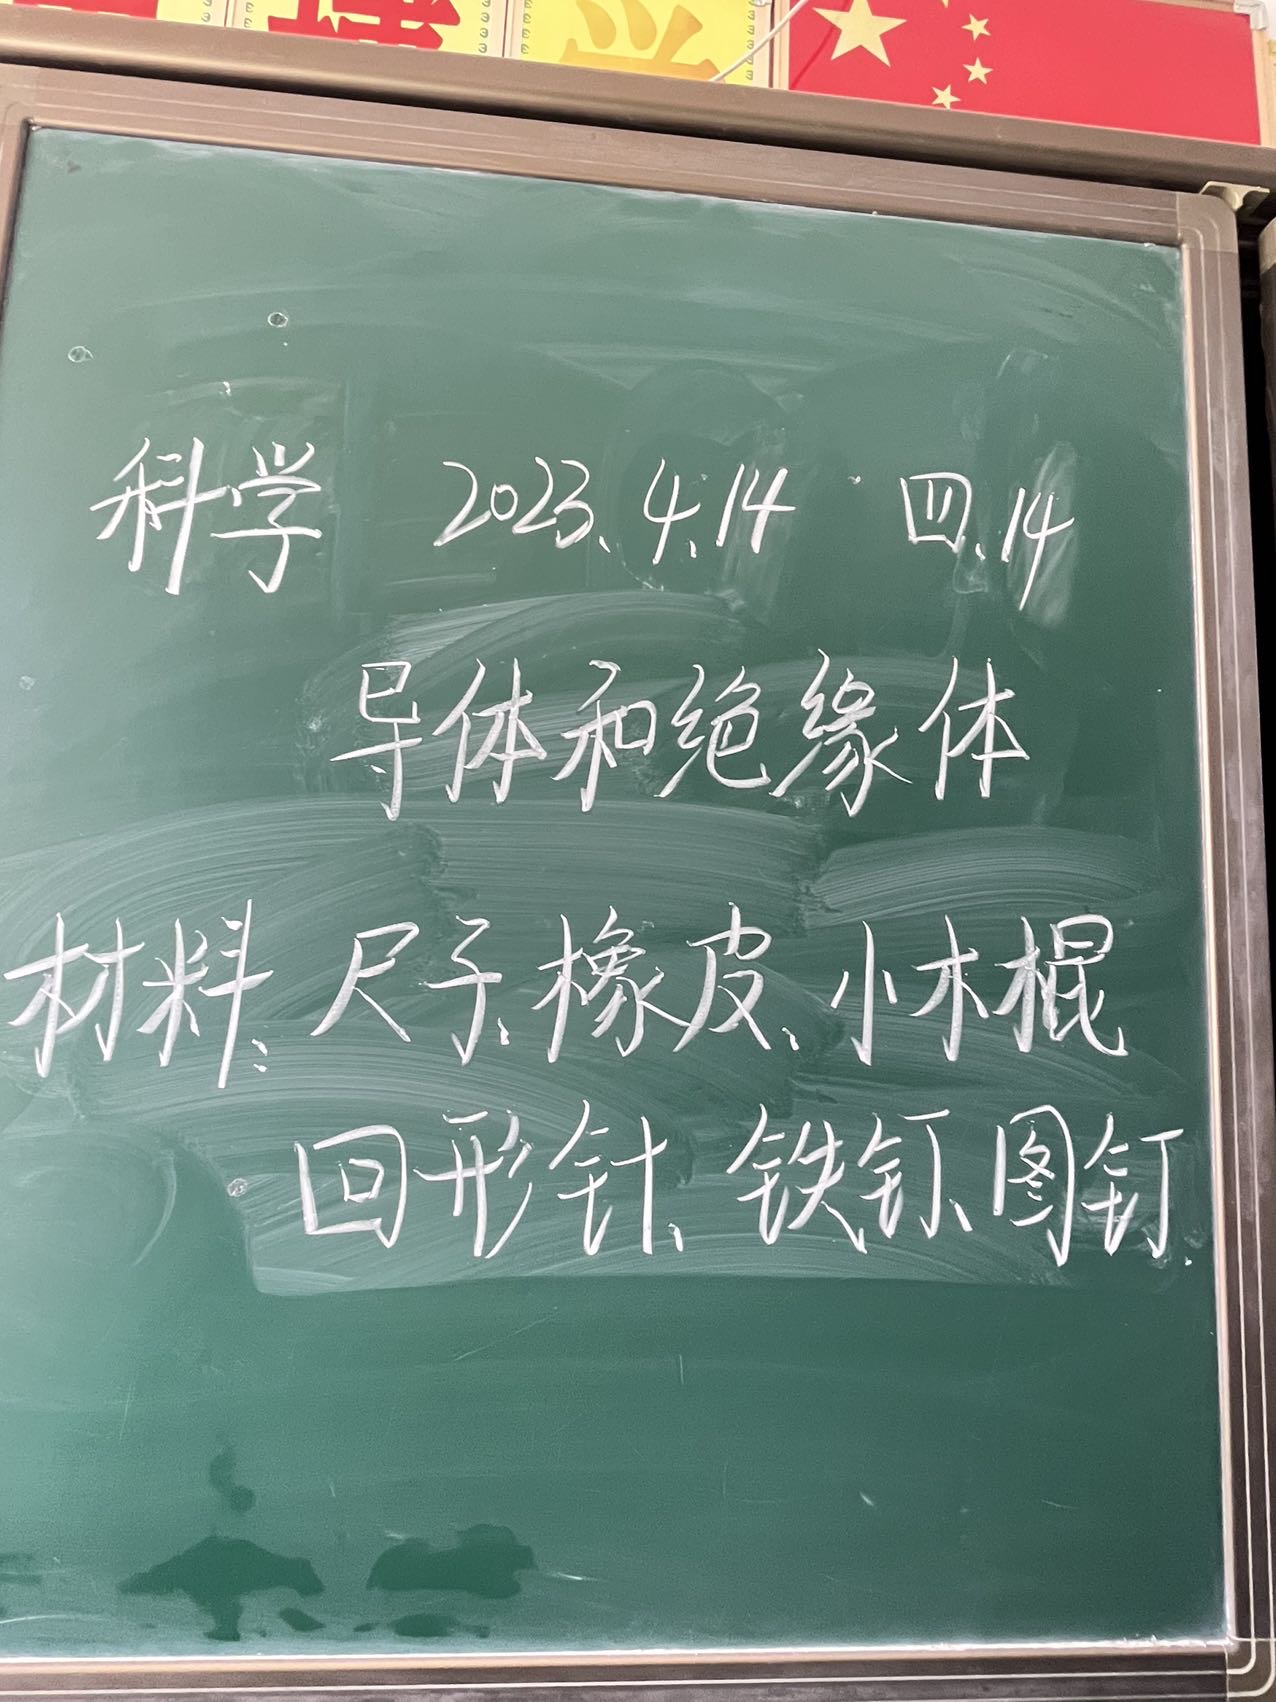 科学 2023.4.14 四.14
导体和绝缘体
材料:尺子、橡皮、小木棍
回形针、铁钉、图钉.